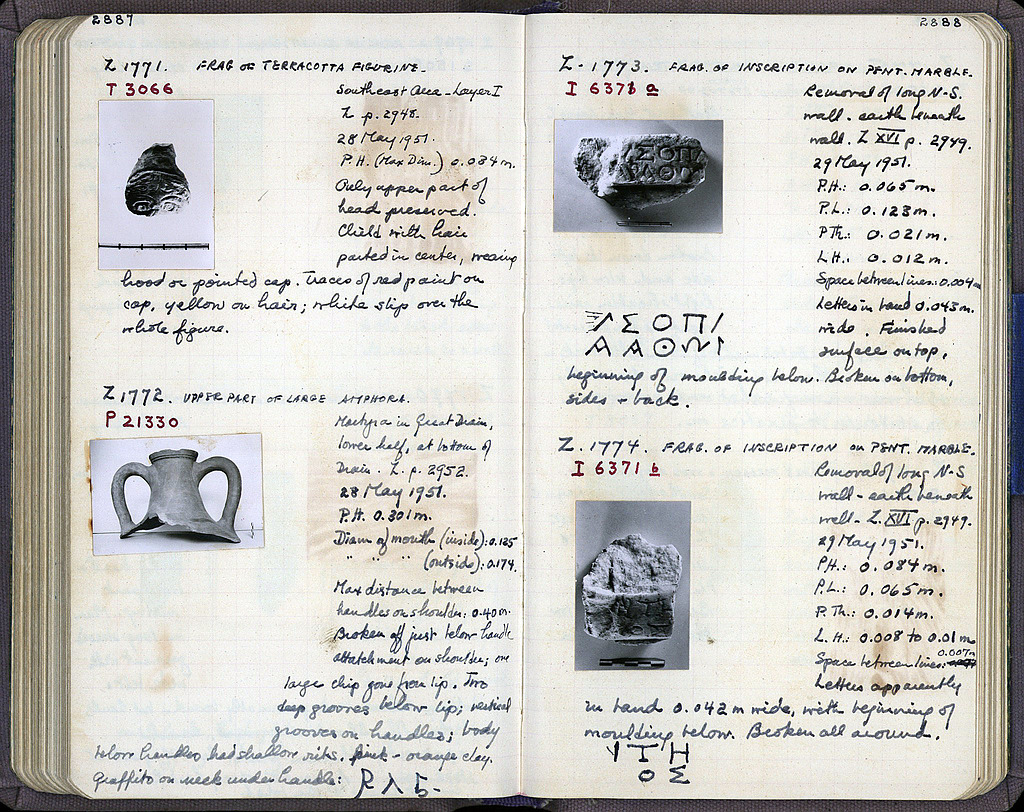 2887
Z 1771. FRAG OF TERRACOTTA FIGURINE.
T 3066
Southeast Area - Layer I
Z p. 2948.
28 May 1951.
P.H. (Max Dim.) 0.034 m.
Only upper part of
head preserved.
Child with hair
parted in center, wearing
hood or pointed cap. Traces of red paint on
cap, yellow on hair; white slip over the
whole figure.
Z 1772. UPPER PART OF LARGE AMPHORA.
P 21330
Martyra in Great Drain,
lower half, at bottom of
Drain. Z p. 2952.
28 May 1951.
P.H. 0.301 m.
Diam of mouth (inside): 0.125
" " " (outside): 0.174.
Max distance between
handles on shoulder: 0.40 m.
Broken off just below handle
attatchment on shoulder; one
large chip gone from lip. Two
deep grooves below lip; vertical
grooves on handles; body
below handles had shallow ribs. Pink-orange clay.
Graffito on neck under handle:
2888
Z-1773. FRAG. OF INSCRIPTION ON PENT. MARBLE.
I 6371 a
Removal of long N-S.
wall. earth beneath
wall. Z XVI p. 2949.
29 May 1951.
P.H.: 0.065 m.
P.L.: 0.123 m.
P.Th.: 0.021 m.
L.H.: 0.012 m.
Space between lines: 0.004 m
Letters in band 0.043 m.
wide. Finished
surface on top,
ΣΟΠΙ
ΑΘΩΝ
beginning of moulding below. Broken on bottom,
sides + back.
Z. 1774. FRAG. OF INSCRIPTION ON PENT. MARBLE.
I 6371 b
Removal of long N-S
wall - earth beneath
wall - Z. XVI p. 2949.
29 May 1951.
P.H.: 0.084 m.
P.L.: 0.065 m.
P.Th.: 0.014 m.
L.H.: 0.008 to 0.01 m
0.007m
Space between lines:
Letters apparently
in band 0.042 m wide, with beginning of
moulding below. Broken all around.
ΥΤΗ
ΟΣ